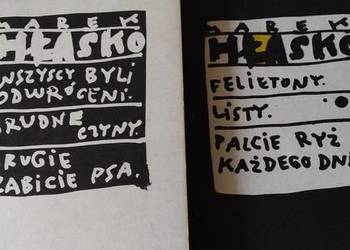 MAREK
HŁASKO
WSZYSCY BYLI
ODWRÓCENI.
BRUDNE
CZYNY.
DRUGIE
ZABICIE PSA.
MAREK
HŁASKO
FELIETONY.
LISTY.
PALCIE RYŻ
KAŻDEGO DNI